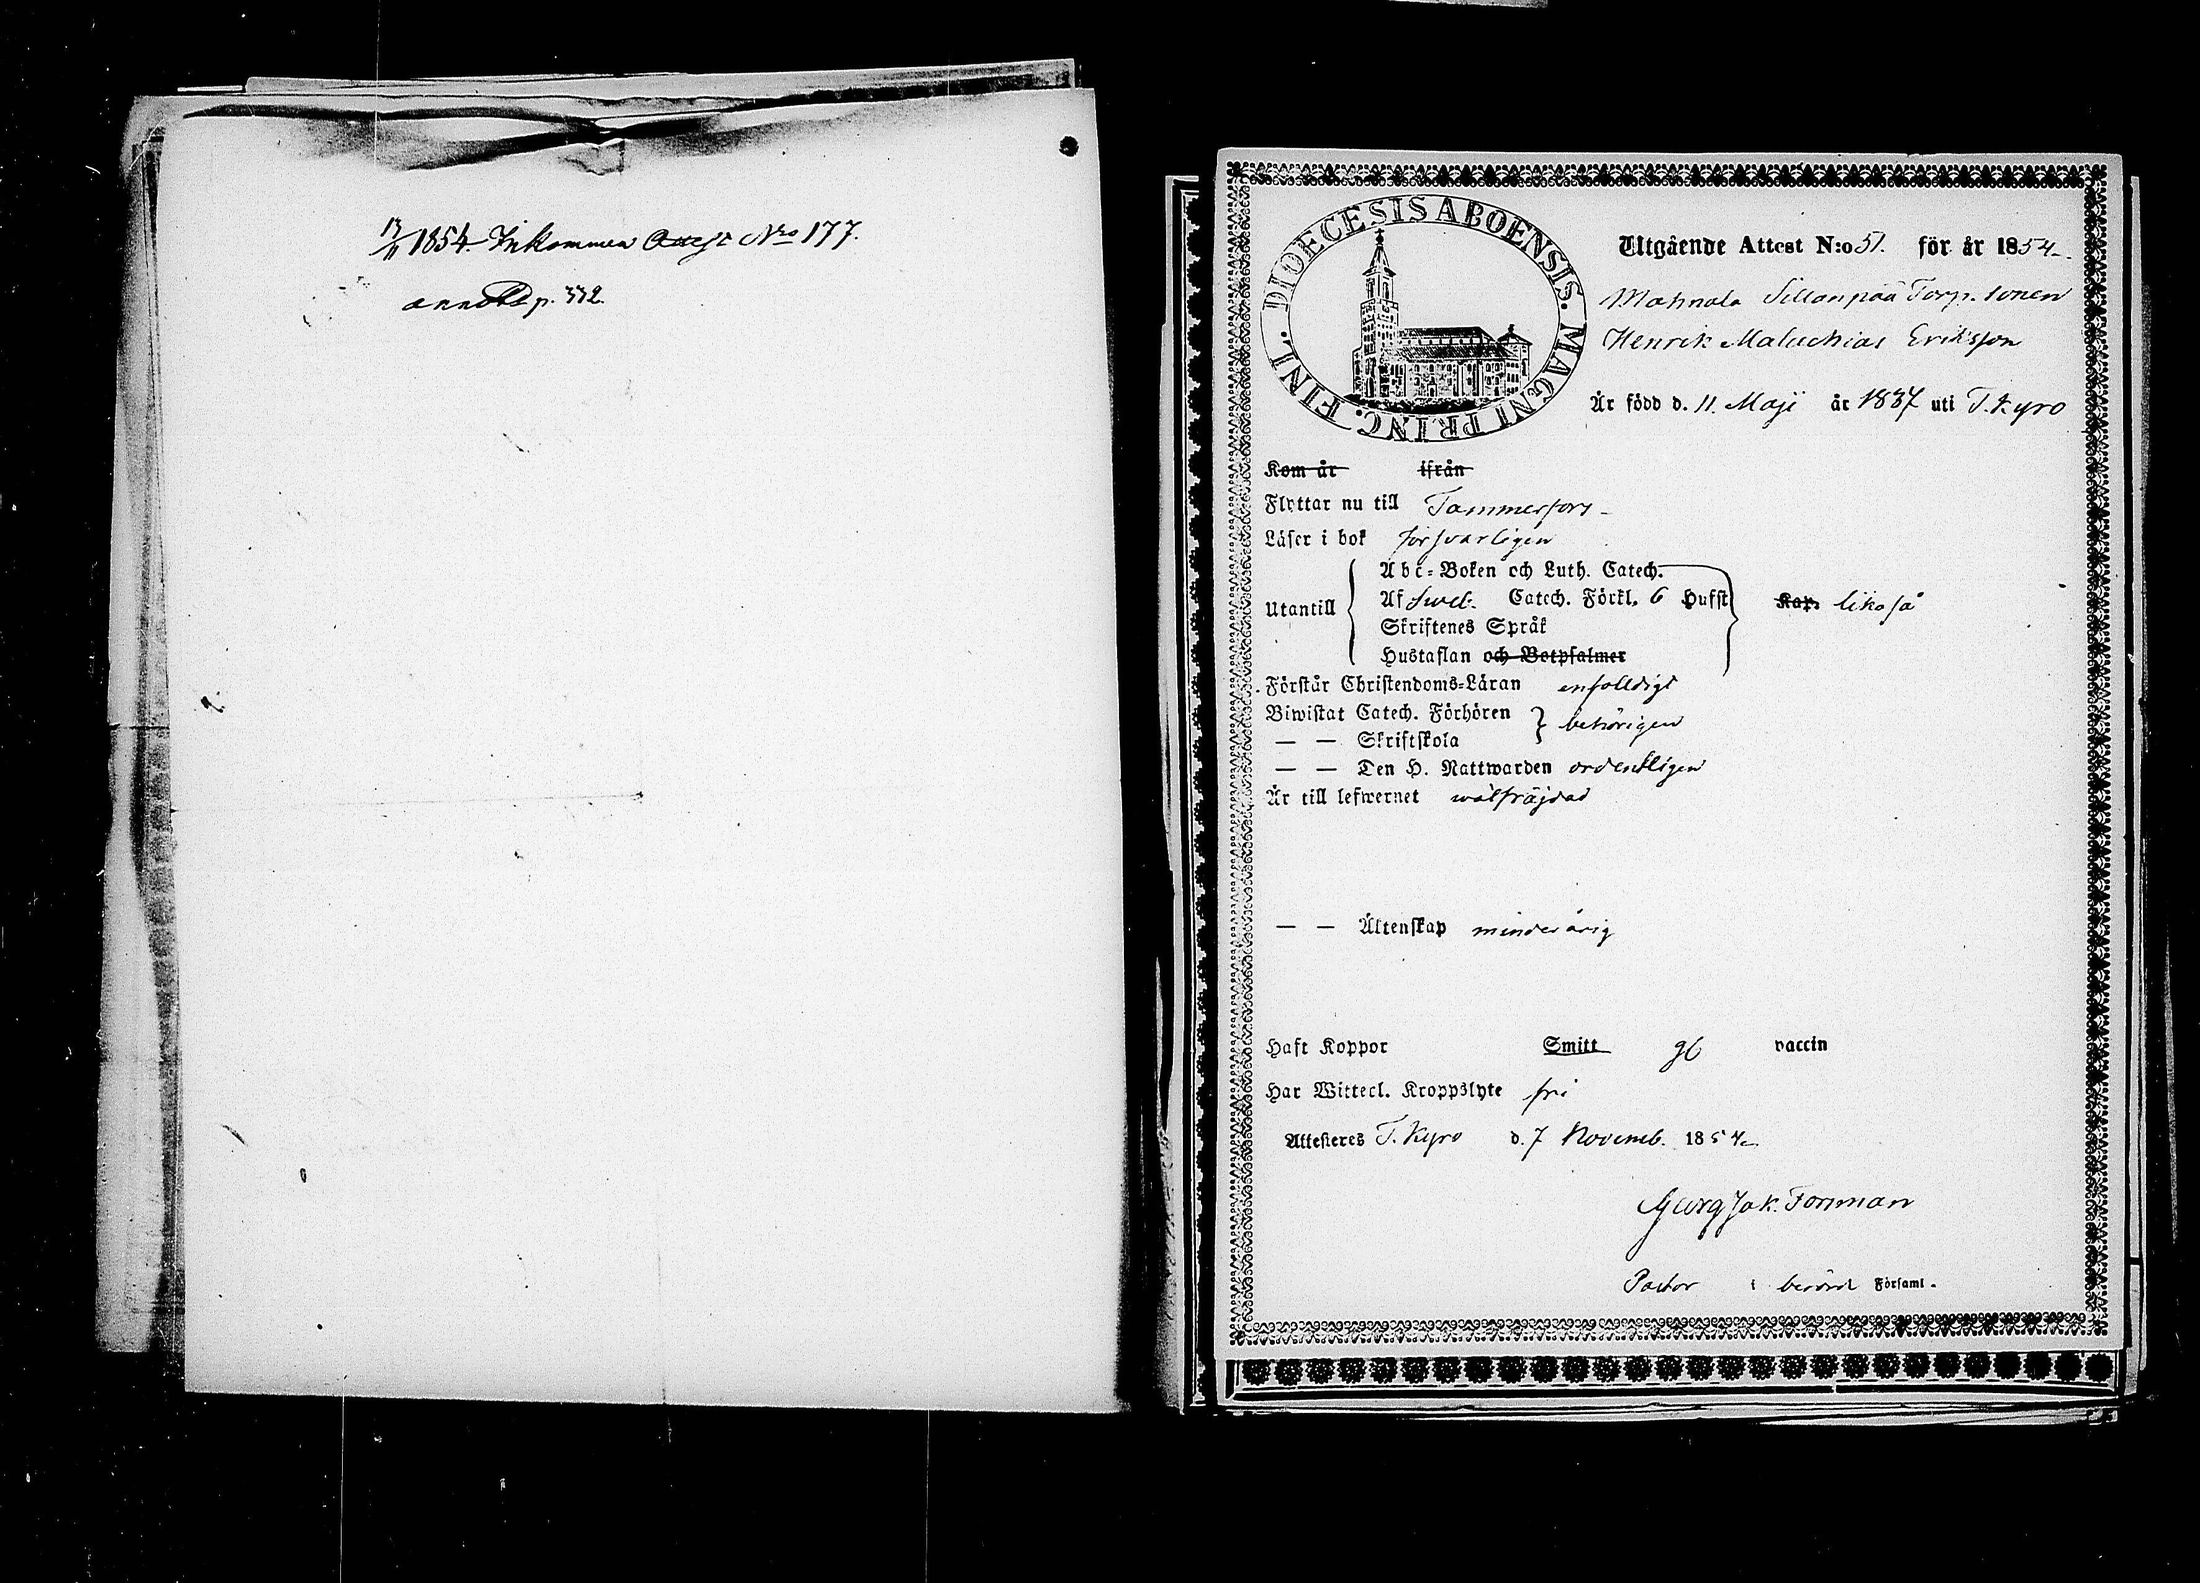 17/11 1854. Inkommen Attest Nro 177.
annoterad p. 332.
DIOECESIS ABOENSIS. MAGNI PRINC. FINL.
Utgående Attest N:o 51. för år 1854.
Mahnala Sillanpää Torp. sonen
Henrik Malachias Eriksson
Är född d. 11. Maji år 1837 uti T. Kyro
Kom år ifrån
Flyttar nu till Tammerfors
Läser i bok försvarligen
Abc-Boken och Luth. Catech.
Utantill Af Sved. Catech. Förkl. 6 Hufst Kap. likaså
Skriftenes Språk
Hustaflan och Botpsalmer
Förstår Christendoms-Läran enfalldigt
Biwistat Catech. Förhören behörigen
— — Skriftskola
— — Den H. Nattwarden ordentligen
Är till lefwernet wälfräjdad
— — Äktenskap minderårig
Haft Koppor Smitt gb vaccin
Har Witterl. Kroppslyte fri
Attesteres T. Kyro d. 7 Novemb. 1854
Georg Jak. Forsman
Pastor i berörd Församl.